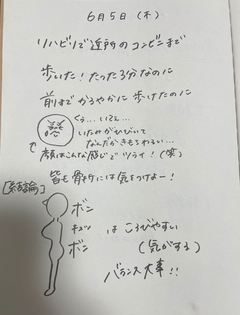 6月5日（木）
リハビリで近所のコンビニまで
歩いた！たった3分なのに
前まで かろやかに歩けたのに
くぅ…いてぇ…
いたみがひびいて
なんだかきもちわるい…
で
顔はこんな感じでツライ！（笑）
皆も骨折には気をつけよー！
［結論］
ボン
キュッ
ボン
は ころびやすい
（気がする）
バランス大事！！